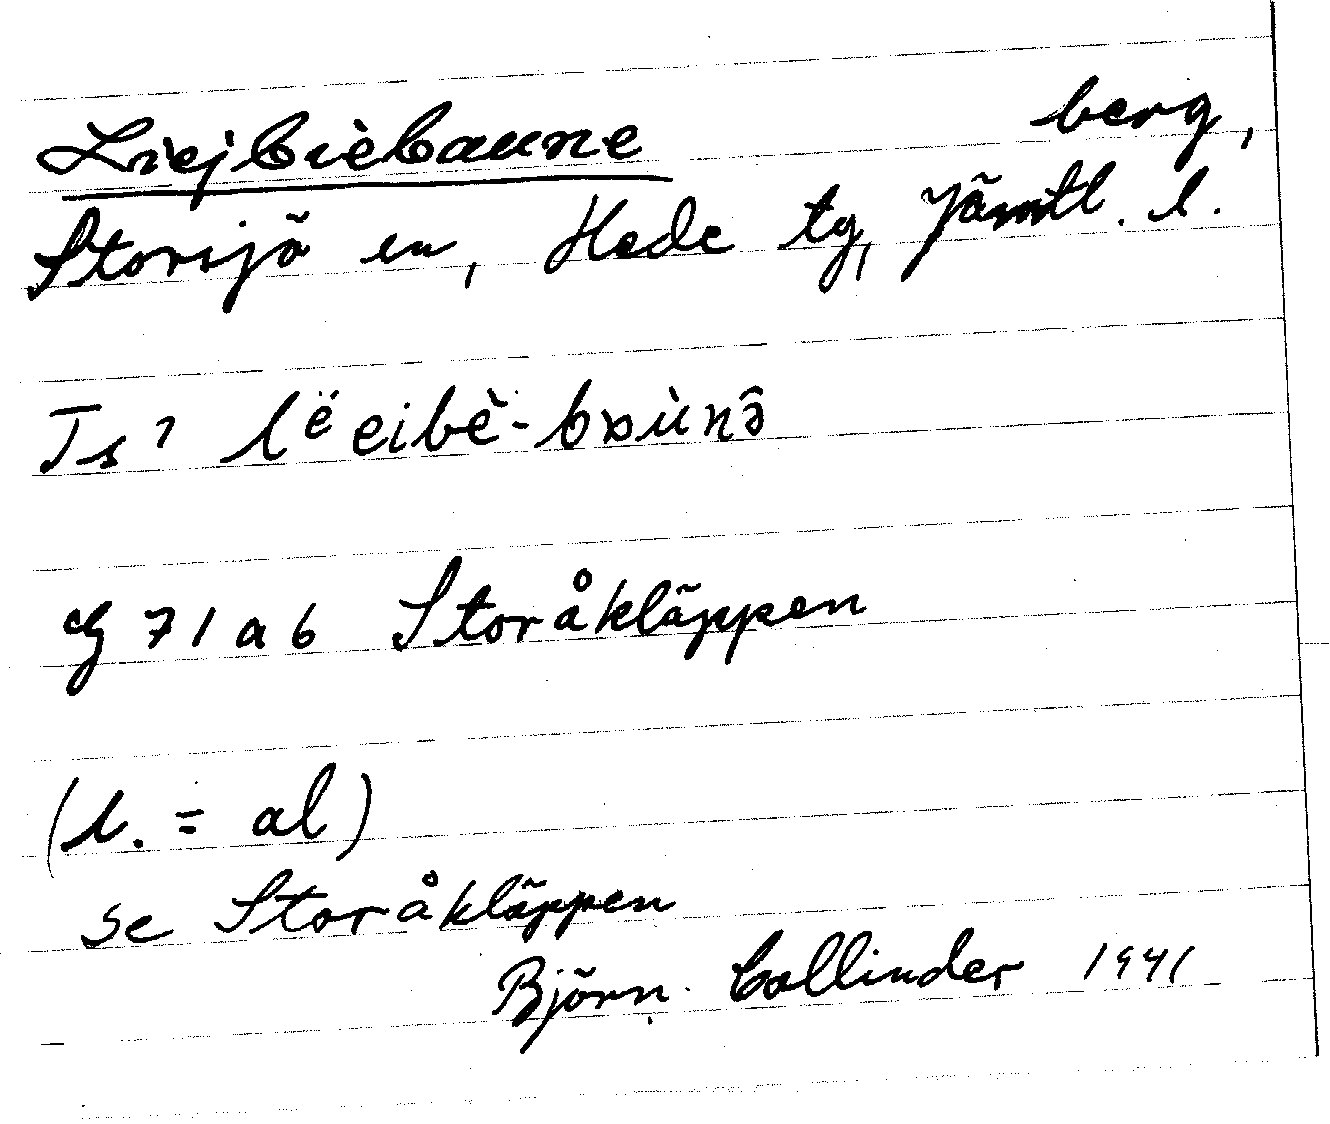 Liejbièbaune berg,
Storsjö sn, Hede tg, Jämtl. l.
lëeibè-bɒùnə̂
cg 71 a b Storåkläppen
(l. = al)
se Storåkläppen
Björn Collinder 1941